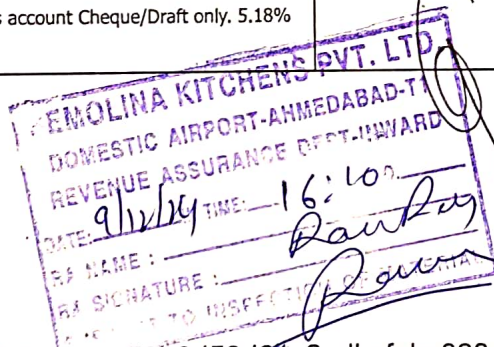 s account Cheque/Draft only. 5.18%
EMOLINA KITCHENS PVT. LTD.
DOMESTIC AIRPORT-AHMEDABAD-T1
REVENUE ASSURANCE DEPT-INWARD
DATE: 9/12/24 TIME: 16:10
RA NAME :
RA SIGNATURE :
TO INSPECTION OF